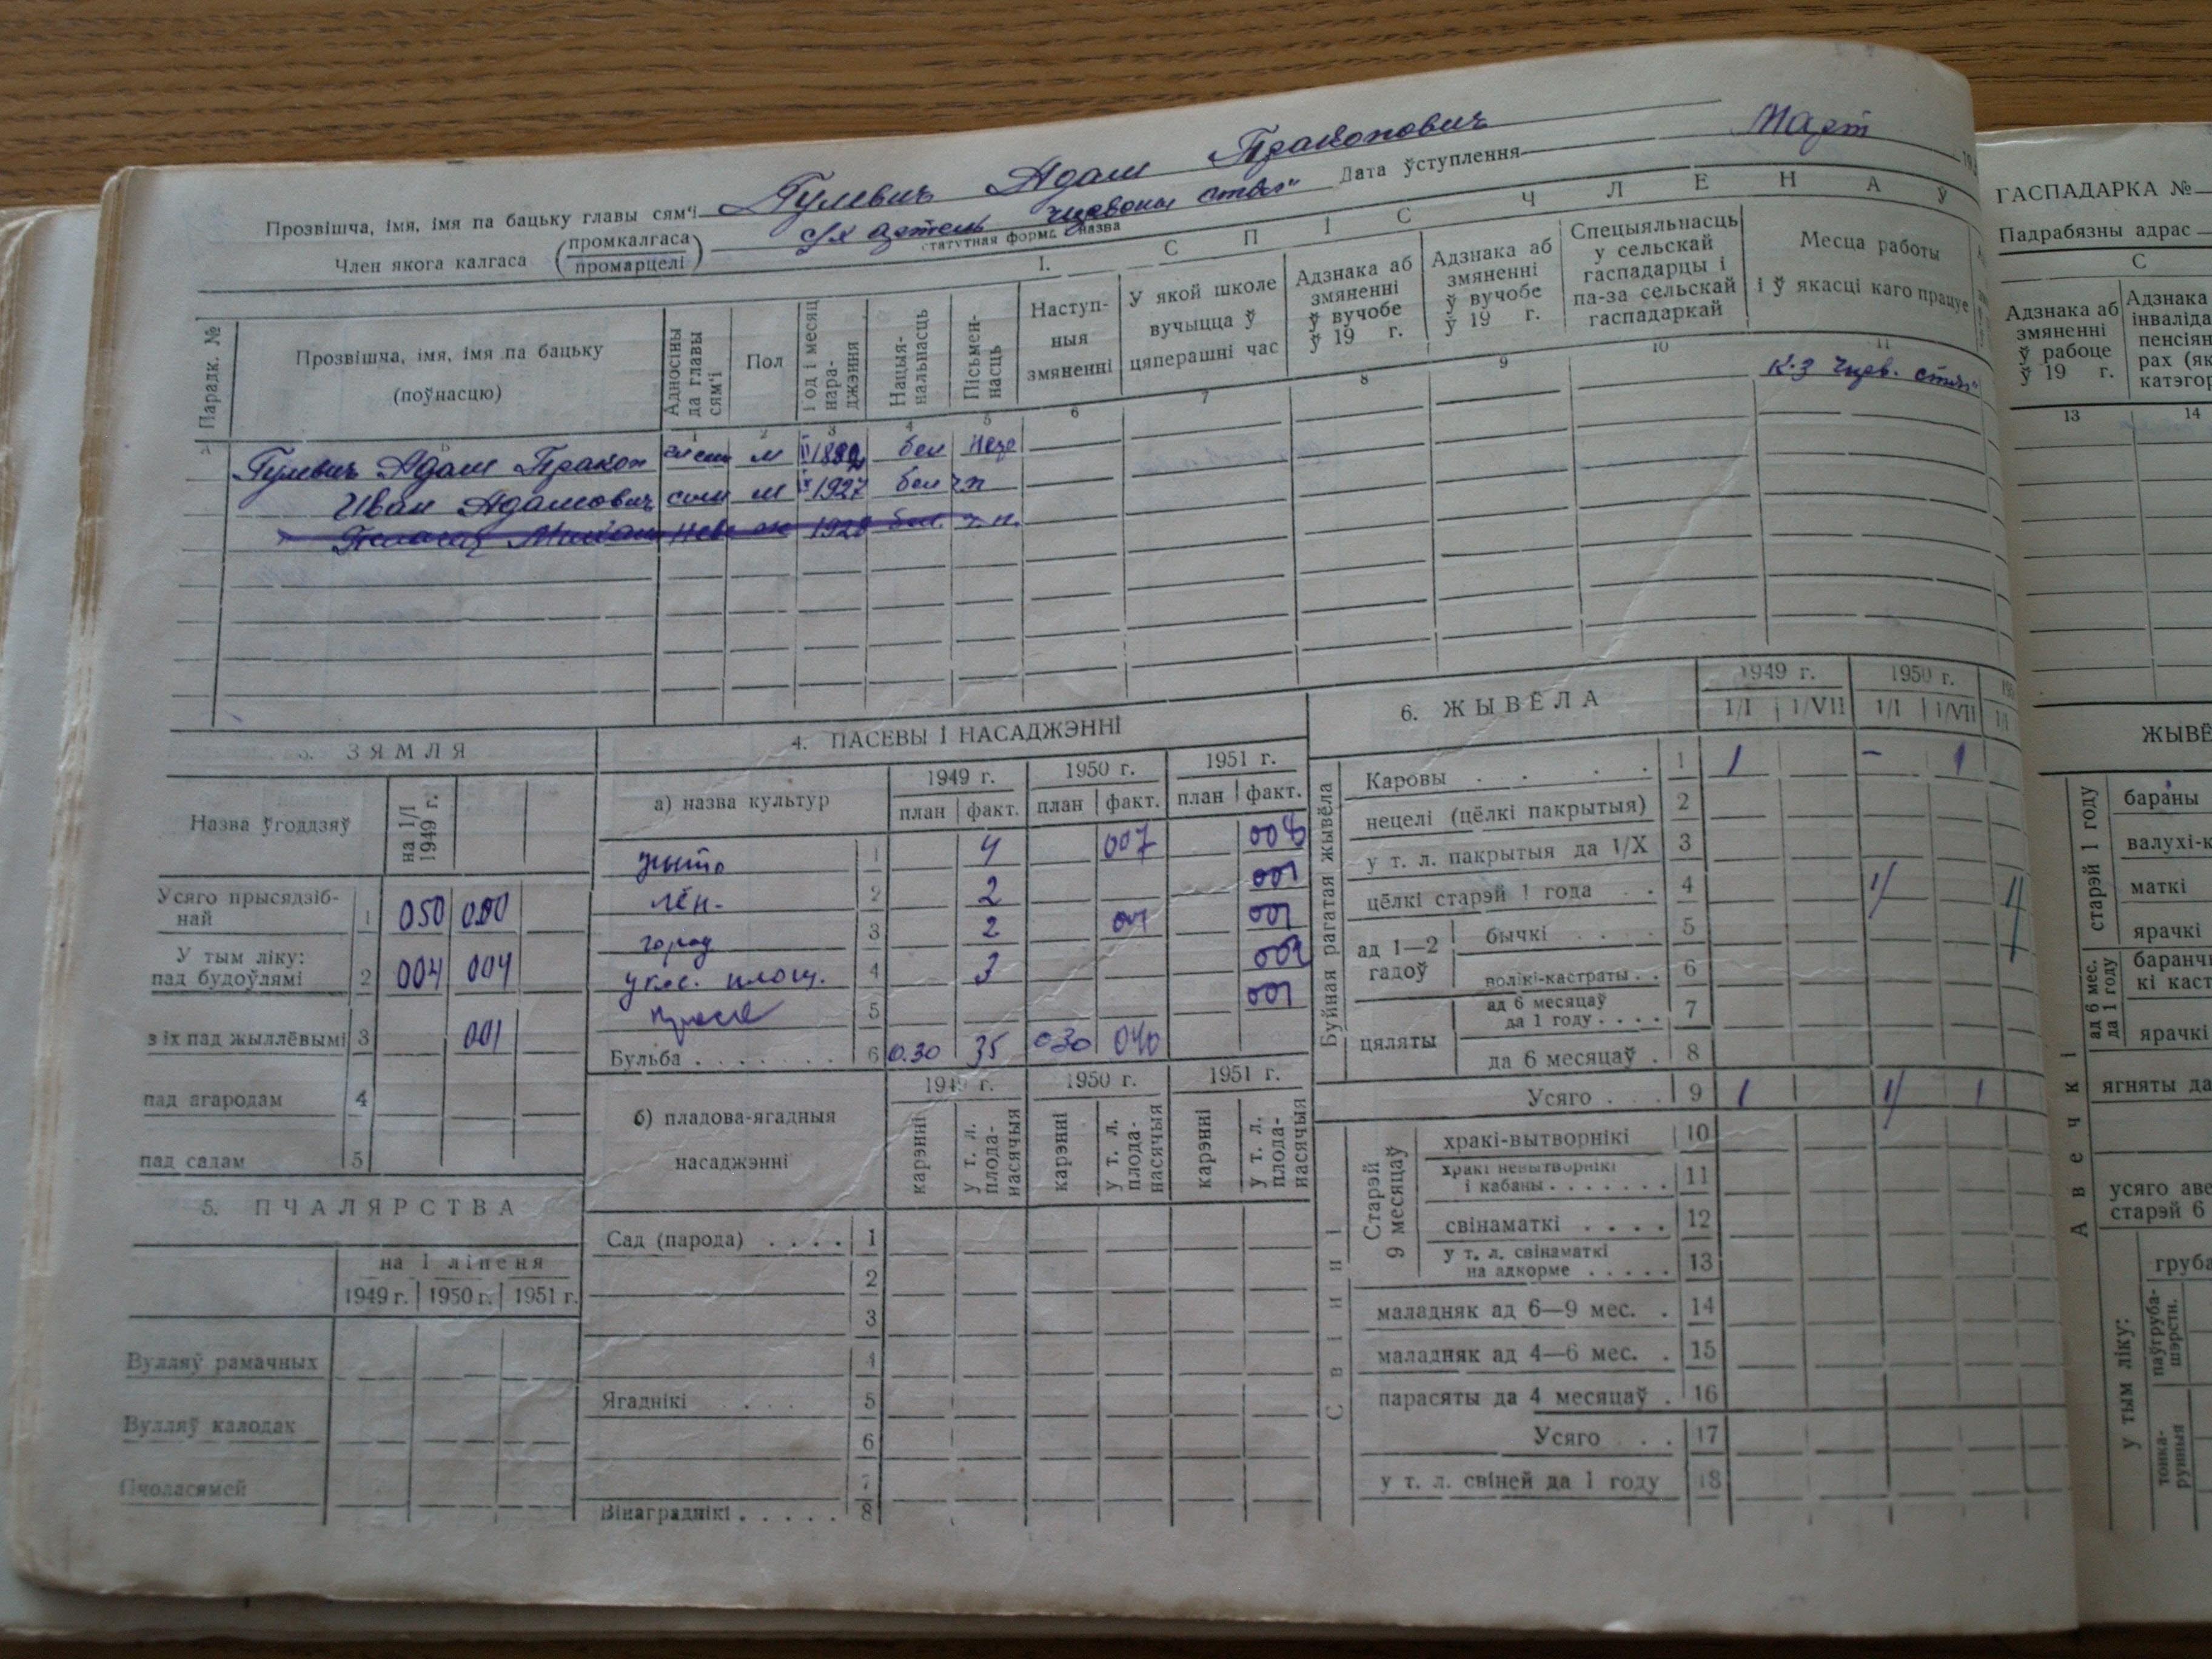 Прозвішча, імя, імя па бацьку главы сям'і Гулевич Адам Пракопович Дата ўступлення Март 19
Член якога калгаса (промкалгаса промарцелі) с/х артель "Чырвоны сцяг"
статутная форма назва
I. СПІС ЧЛЕНАЎ
Парадк. №
Прозвішча, імя, імя па бацьку (поўнасцю)
Адносіны да главы сям'і
Пол
Год і месяц нараджэння
Нацыянальнасць
Пісьменнасць
Наступныя змяненні
У якой школе вучыцца ў цяперашні час
Адзнака аб змяненні ў вучобе ў 19 г.
Адзнака аб змяненні ў вучобе ў 19 г.
Спецыяльнасць у сельскай гаспадарцы і па-за сельскай гаспадаркай
Месца работы і ў якасці каго працуе
1 2 3 4 5 6 7 8 9 10 11
Гулевич Адам Пракоп м бел
Иван Адамович сын м 1927 бел
1928 бел.
3. ЗЯМЛЯ
Назва ўгоддзяў
на 1/I 1949 г.
Усяго прысядзібнай 1 050 050
У тым ліку:
пад будоўлямі 2 004 004
з іх пад жыллёвымі 3 001
пад агародам 4
пад садам 5
5. ПЧАЛЯРСТВА
на 1 ліпеня
1949 г. 1950 г. 1951 г.
Вулляў рамачных
Вулляў калодак
Пчоласямей
4. ПАСЕВЫ І НАСАДЖЭННІ
а) назва культур
1949 г. 1950 г. 1951 г.
план факт. план факт. план факт.
жыто 1 4 007 008
лён 2 2 001
город 3 2 001 001
4 3 002
5 001
Бульба 6 0.30 35 030 040
б) пладова-ягадныя насаджэнні
1949 г. 1950 г. 1951 г.
карэнні у т. л. плоданасячыя карэнні у т. л. плоданасячыя карэнні у т. л. плоданасячыя
Сад (парода) 1
2
3
4
Ягаднікі 5
6
7
Вінаграднікі 8
6. ЖЫВЁЛА
1949 г. 1950 г.
1/I 1/VII 1/I 1/VII
Буйная рагатая жывёла
Каровы 1 1 – 1
нецелі (цёлкі пакрытыя) 2
у т. л. пакрытыя да 1/X 3
цёлкі старэй 1 года 4
ад 1—2 гадоў
бычкі 5
волікі-кастраты 6
цяляты
ад 6 месяцаў да 1 году 7
да 6 месяцаў 8
Усяго 9 1 1
Свінні
Старэй 9 месяцаў
хракі-вытворнікі 10
хракі невытворнікі і кабаны 11
свінаматкі 12
у т. л. свінаматкі на адкорме 13
маладняк ад 6—9 мес. 14
маладняк ад 4—6 мес. 15
парасяты да 4 месяцаў 16
Усяго 17
у т. л. свіней да 1 году 18
ГАСПАДАРКА №
Падрабязны адрас
С
Адзнака аб змяненні ў рабоце ў 19 г.
Адзнака
13 14
ЖЫВЁ
Авечкі
старэй 1 году
бараны
валухі-к
маткі
ярачкі
ад 6 мес. да 1 году
баранч
кі каст
ярачкі
ягняты да
усяго аве
старэй 6
у тым ліку:
груба
паўгруба-шэрстн.
тонка-рунныя